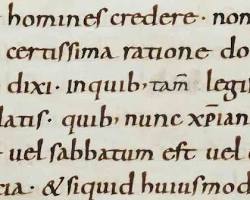 homines credere · non
certissima ratione do
dixi · inquib; tam̄ legis
latis · quib; nunc xp̄ian
uel sabbatum est uel c
cia · & siquid huiusmod